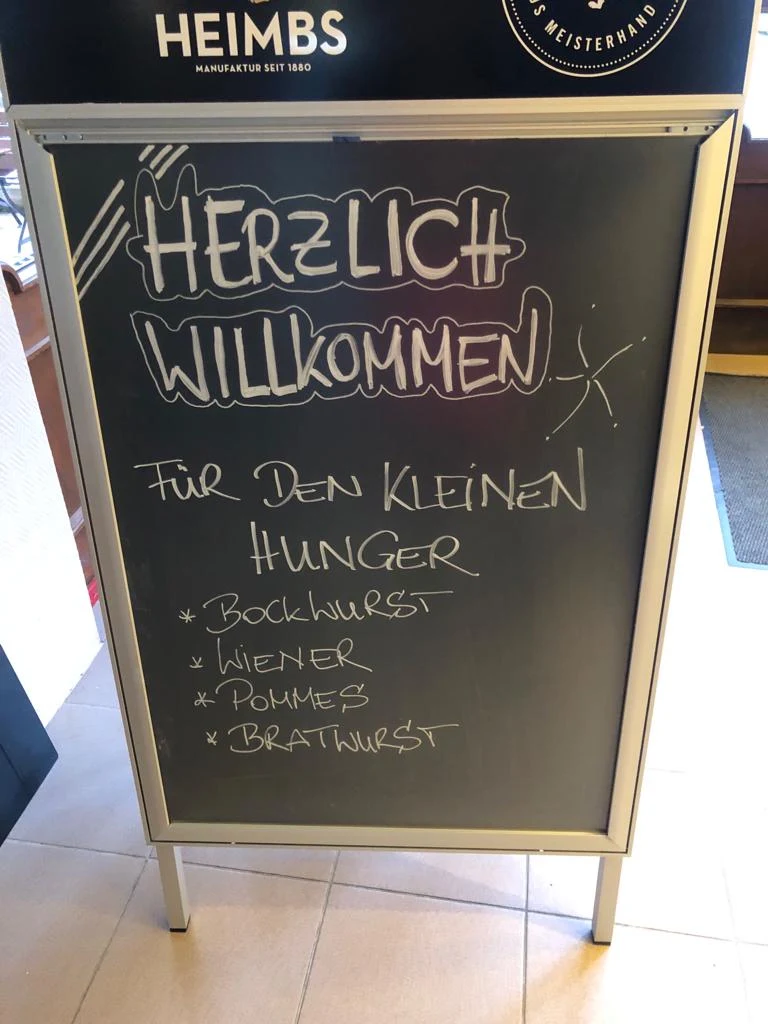 HEIMBS
MANUFAKTUR SEIT 1880
US MEISTERHAND
HERZLICH
WILLKOMMEN
FÜR DEN KLEINEN
HUNGER
* BOCKWURST
* WIENER
* POMMES
* BRATWURST